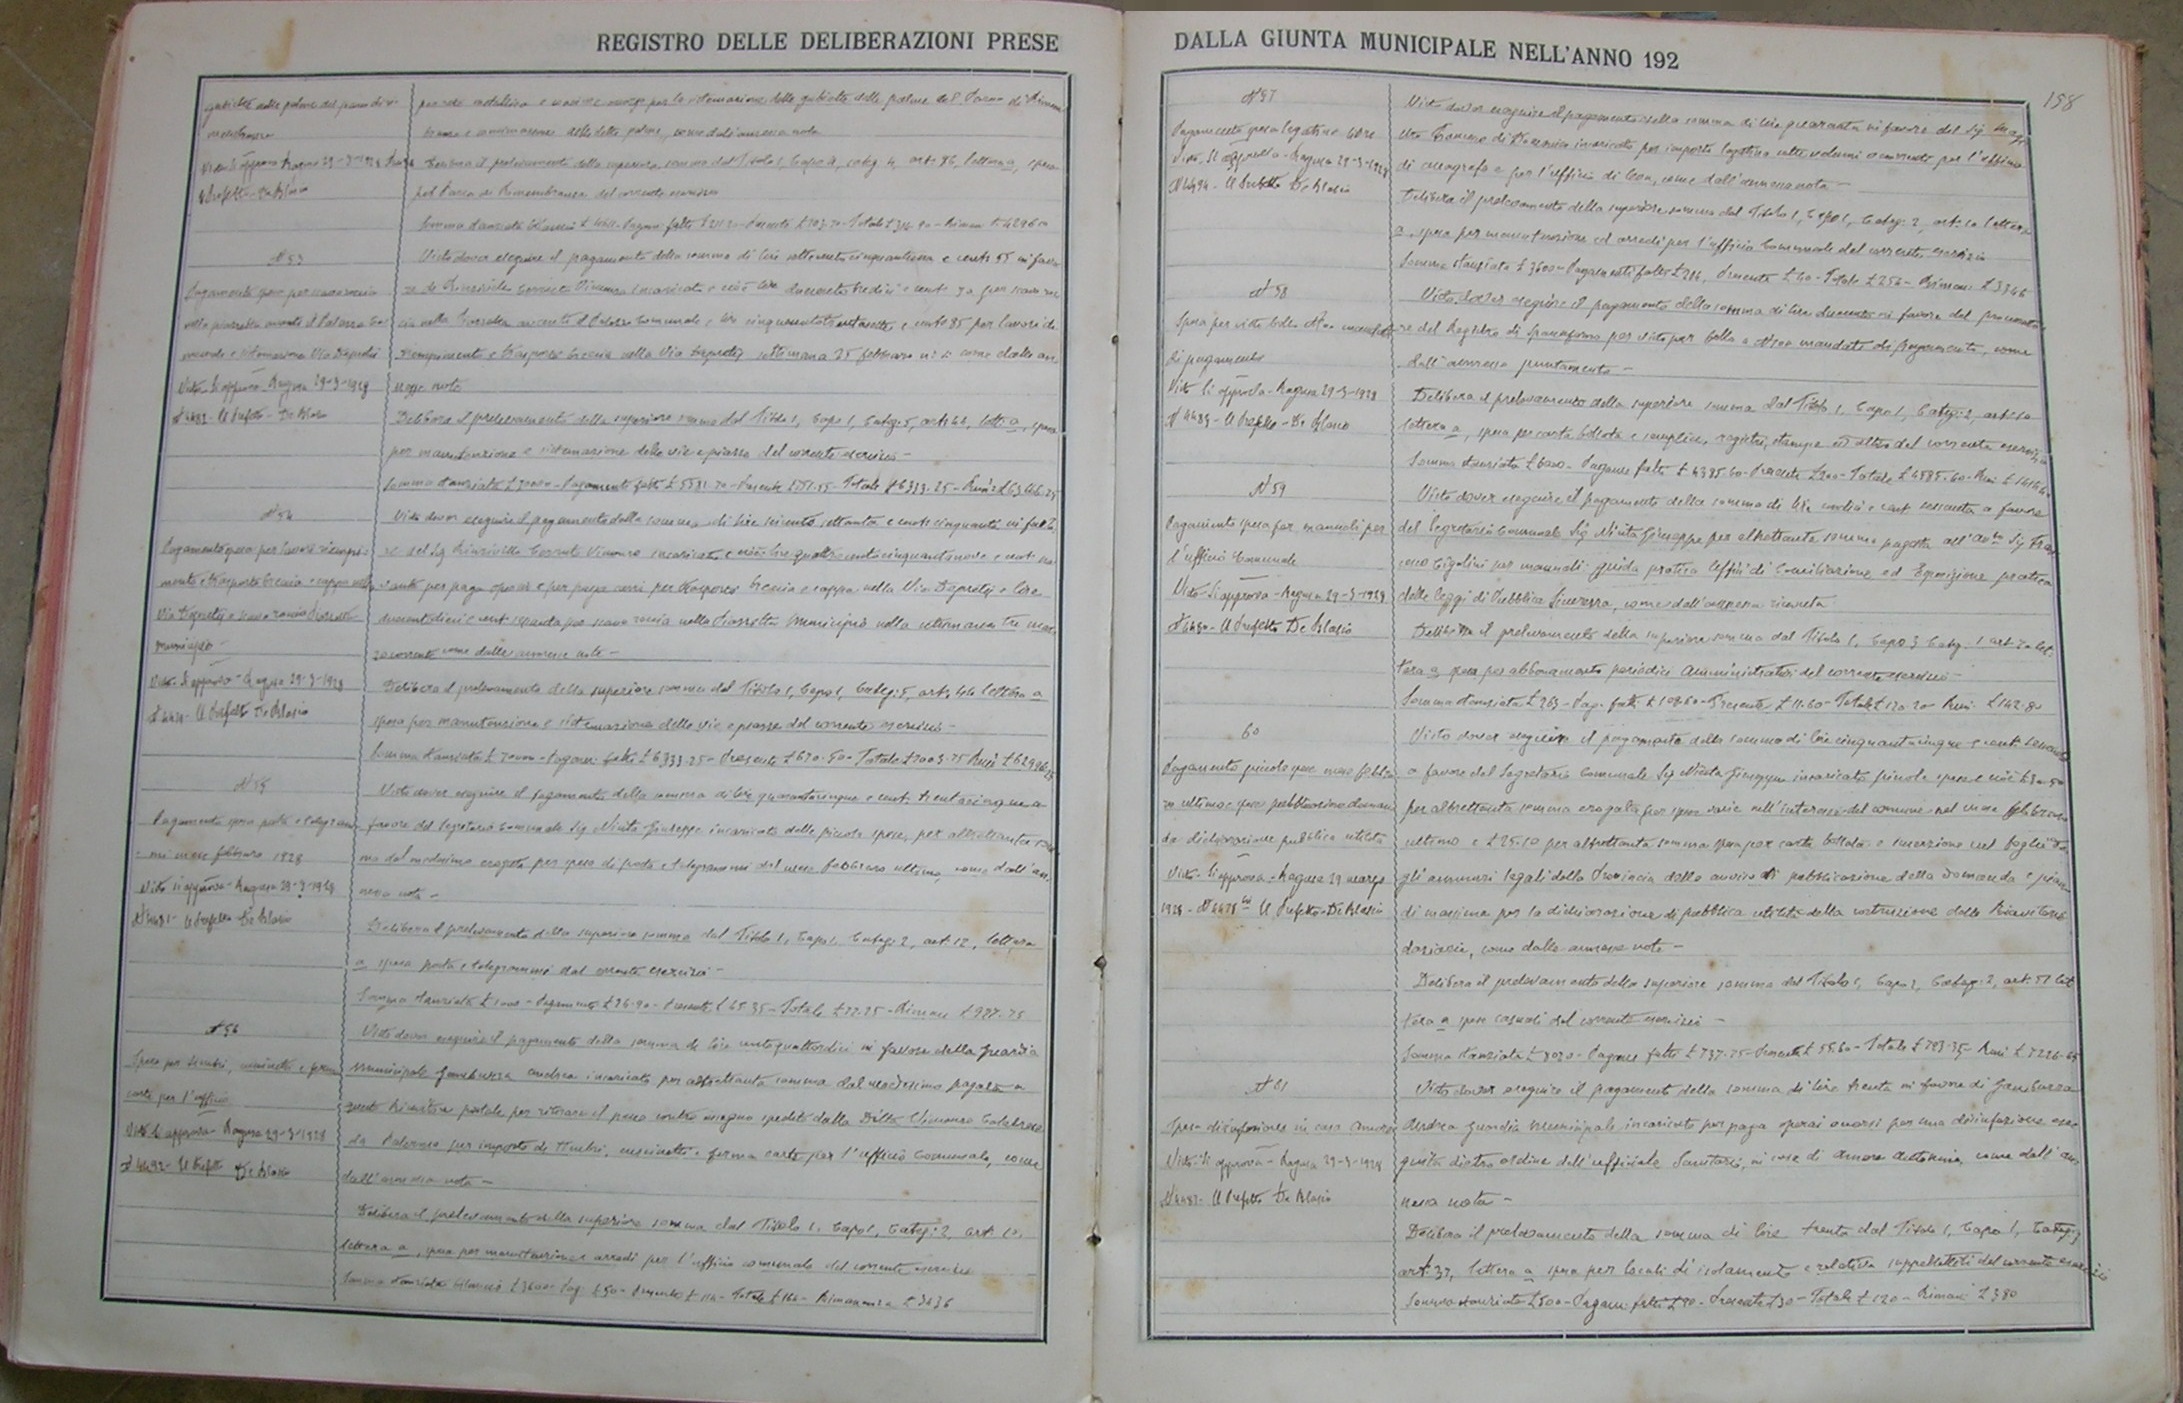 REGISTRO DELLE DELIBERAZIONI PRESE
per la sistemazione delle gabiette delle
come dall'annessa nota
Delibera il prelevamento della superiore somma dal Titolo 1, Capo 4, categ. 4, art. 86, lettera a, spese
pel Parco di Rimembranza del corrente esercizio
Visto si approva Ragusa 29-3-1928
Il Prefetto - De Blasio
N 53
Visto dover eseguire il pagamento della somma di lire settecentocinquantuna e cent. 55 in favo
nella piazzetta avanti il Palazzo Co
cia nella Piazzetta avanti il Palazzo Comunale e lire cinquecentotrentasette e cent. 85 per lavori di
munale e sistemazione Via Depretis
e trasporto breccia nella Via Depretis settimana 25 febbraio u. s. come dalle an
nesse note
Visto Si approva - Ragusa 29-3-1928
Il Prefetto - De Blasio
Delibera il prelevamento della superiore somma dal Titolo 1, Capo 1, Categ. 5, art. 44, lett. a, spese
per manutenzione e sistemazione delle vie e piazze del corrente esercizio -
Somma stanziata £ 70000 - Pagamenti fatti £ 5581.70 - Presente £ 751.55 - Totale £ 6333.25 - Rim. £ 63666.75
N 54
Visto dover eseguire il pagamento della somma di lire seicento settanta e cent. cinquanta in favo
Pagamento spesa per lavori
mento e trasporto breccia e cappa nella
per paga operai e per paga carri per trasporto breccia e cappa nella Via Depretis e lire
Via Depretis e scavo roccia Piazzetta
duecentodieci e cent. sessanta per scavo roccia nella Piazzetta Municipio nella settimana tre mar
Municipio -
zo corrente come dalle annesse note -
Visto Si approva - Ragusa 29-3-1928
Il Prefetto De Blasio
Delibera il prelevamento della superiore somma dal Titolo 1, Capo 1, Categ. 5, art. 44 lettera a
spesa per manutenzione e sistemazione delle vie e piazze del corrente esercizio -
Somma stanziata £ 70000 - Pagam. fatti £ 6333.25 - Presente £ 670.50 - Totale £ 7003.75 Rim. £ 62996.25
N 55
Visto dover eseguire il pagamento della somma di lire quarantacinque e cent. trentacinque a
Pagamento spesa posta e telegram
favore del Segretario Comunale Sig. Ninità Giuseppe incaricato delle piccole spese, per altrettanta som
mi mese febbraio 1928
ma dal medesimo erogata per spese di posta e telegrammi del mese febbraio ultimo, come dall'an
Visto si approva - Ragusa 29-3-1928
nessa nota -
N 4481 - Il Prefetto De Blasio
Delibera il prelevamento della superiore somma dal Titolo 1, Capo 1, Categ. 2, art. 12, lettera
a spesa posta e telegrammi del corrente esercizio -
Somma stanziata £ 1000 - Pagamento £ 26.90 - Presente £ 45.35 - Totale £ 72.25 - Rimane £ 927.75
N 56
Visto dover eseguire il pagamento della somma di lire centoquattordici in favore della Guardia
Spesa per timbri, cuscinetti e ferma
Municipale Gambuzza Andrea incaricato per altrettanta somma dal medesimo pagata a
carte per l'ufficio
questo Ricevitore postale per ritirare il pacco contro assegno spedito dalla Ditta Calabrese
Visto Si approva - Ragusa 29-3-1928
da Palermo per importo di timbri, cuscinetti e ferma carte per l'ufficio Comunale, come
N 4492 - Il Prefetto De Blasio
dall'annessa nota -
Delibera il prelevamento della superiore somma dal Titolo 1, Capo 1, Categ. 2, art. 10,
lettera a, spesa per manutenzione arredi per l'ufficio comunale del corrente esercizio
Somma stanziata bilancio £ 3600 - Pag. £ 50 - Presente £ 114 - Totale £ 164 - Rimanenza £ 3436
DALLA GIUNTA MUNICIPALE NELL'ANNO 192
158
N 57
Visto dover eseguire il pagamento della somma di lire quaranta in favore del Sig.
Pagamento spesa legatura libri
incaricato per importo legatura volumi occorrente per l'ufficio
Visto Si approva - Ragusa 29-3-1928
di anagrafe e per l'ufficio di leva, come dall'annessa nota -
N 4494 - Il Prefetto De Blasio
Delibera il prelevamento della superiore somma dal Titolo 1, Capo 1, Categ. 2, art. 10 lettera
a, spesa per manutenzione ed arredi per l'ufficio Comunale del corrente esercizio
Somma stanziata £ 3600 - Pagamenti fatti £ 214, Presente £ 40 - Totale £ 254 - Rimane £ 3346
N 58
Visto dover eseguire il pagamento della somma di lire duecento in favore del procurato
Spesa per visto bollo N 100 mandati
re del Registro di Spaccaforno per visto per bollo a N 100 mandati di pagamento, come
di pagamento
dall'annesso
Visto Si approva - Ragusa 29-3-1928
Delibera il prelevamento della superiore somma dal Titolo 1, Capo 1, Categ. 2, art. 10
N 4489 - Il Prefetto - De Blasio
lettera a, spesa per carta bollata e semplice, registri, stampe ed altro del corrente esercizio
Somma stanziata £ 6000 - Pagam. fatti £ 4385.60 - Presente £ 200 - Totale £ 4585.60 - Rim. £ 1414.40
N 59
Visto dover eseguire il pagamento della somma di lire undici e cent. sessanta a favore
Pagamento spesa per manuali per
del Segretario Comunale Sig. Ninità Giuseppe per altrettanta somma pagata all'
l'ufficio Comunale
per manuali: guida pratica Uffici di Conciliazione ed Esposizione pratica
Visto Si approva - Ragusa 29-3-1928
delle leggi di Pubblica Sicurezza, come dall'annessa ricevuta
N 4480 - Il Prefetto De Blasio
Delibera il prelevamento della superiore somma dal Titolo 1, Capo 3 Categ. 1 art. 70 let
tera a spesa per abbonamento periodici amministrativi del corrente esercizio -
Somma stanziata £ 263 - Pag. fatti £ 108.60 - Presente £ 11.60 - Totale £ 120.20 - Rim. £ 142.80
60
Visto dover eseguire il pagamento della somma di lire cinquantacinque e cent. sessanta
Pagamento piccole spese mese febbra
a favore del Segretario Comunale Sig. Ninità Giuseppe incaricato piccole spese e cioè £ 30.50
io ultimo e spese pubblicazione doman
per altrettanta somma erogata per spese varie nell'interesse del comune nel mese febbraio
da dichiarazione pubblica utilità
ultimo e £ 25.10 per altrettanta somma spesa per carta bollata e inserzione nel foglio de
Visto - Si approva - Ragusa 29 marzo
gli annunzi legali della Provincia dello avviso di pubblicazione della domanda e piano
1928 - N 4478 bis Il Prefetto - De Blasio
di massima per la dichiarazione di pubblica utilità della costruzione della Ricevitoria
daziaria, come dalle annesse note -
Delibera il prelevamento della superiore somma dal Titolo 1, Capo 1, Categ. 2, art. 51 let
tera a spese casuali del corrente esercizio -
Somma stanziata £ 8020 - Pagam. fatti £ 737.75 - Presente £ 55.60 - Totale £ 793.35 - Rim. £ 7226.65
N 61
Visto dover eseguire il pagamento della somma di lire trenta in favore di Gambuzza
Spesa disinfezione in casa Amore
Andrea guardia municipale incaricato per paga operai occorsi per una disinfezione ese
Visto Si approva - Ragusa 29-3-1928
guita dietro ordine dell'ufficiale Sanitario, in casa di Amore Antonino, come dall'an
N 4483 - Il Prefetto De Blasio
nessa nota -
Delibera il prelevamento della somma di lire trenta dal Titolo 1, Capo 1, Categ. 3
art. 37, lettera a spesa per locali di isolamento e relativa suppellettili del corrente esercizio
Somma stanziata £ 500 - Pagam. fatti £ 90 - Presente £ 30 - Totale £ 120 - Rimane £ 380